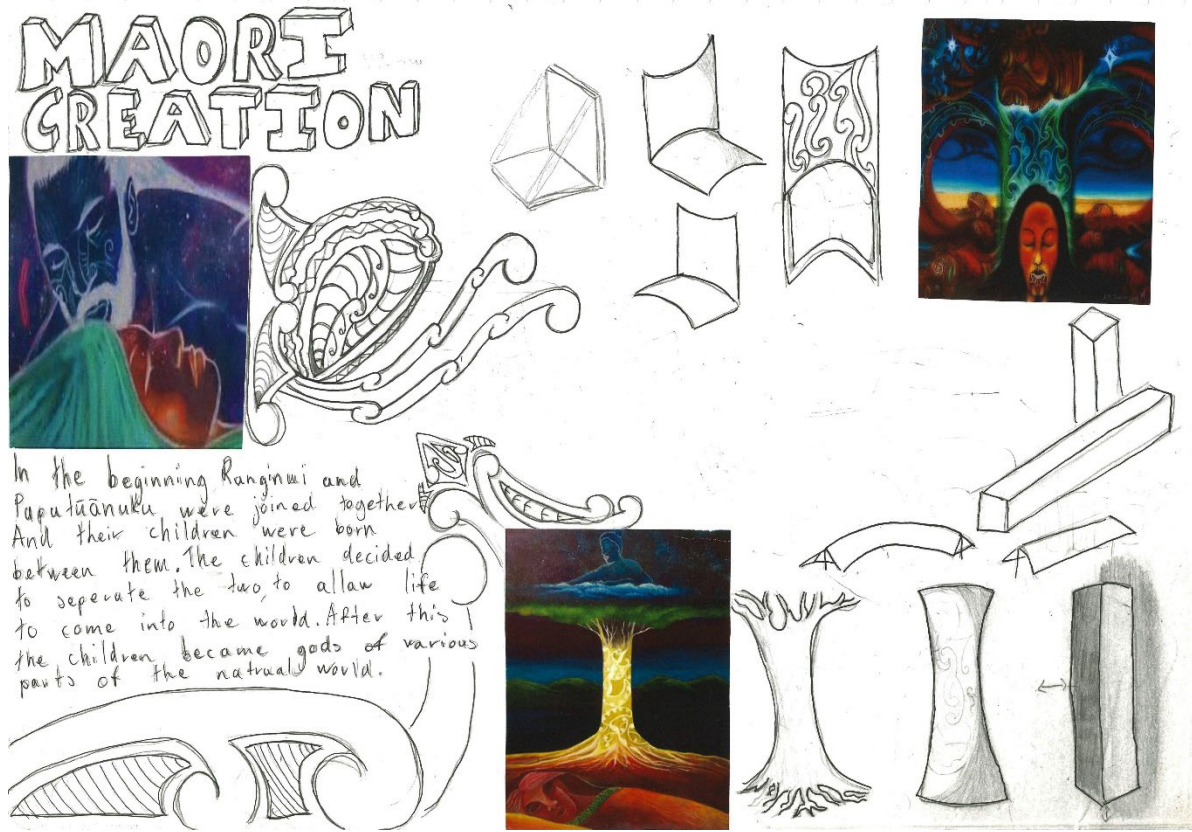 MAORI
CREATION
In the beginning Ranginui and
Paputūānuku were joined together
And their children were born
between them. The children decided
to seperate the two, to allaw life
to come into the world. After this
the children became gods of various
parts of the natrual world.